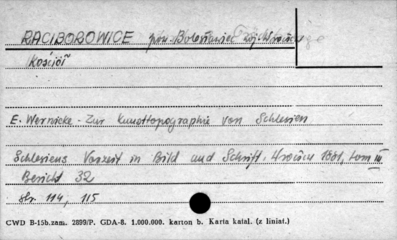 RACIBOROWICE pow. Bolesławiec woj. Wrocław
Kościół
E. Wernicke - Zur Kunsttopographie von Schlesien
Schlesiens Vorzeit in Bild und Schrift. Wrocław 1881, tom III
Bericht 32
str. 114, 115
CWD B-15b.zam. 2899/P. GDA-8. 1.000.000. karton b. Karta katal. (z liniat.)